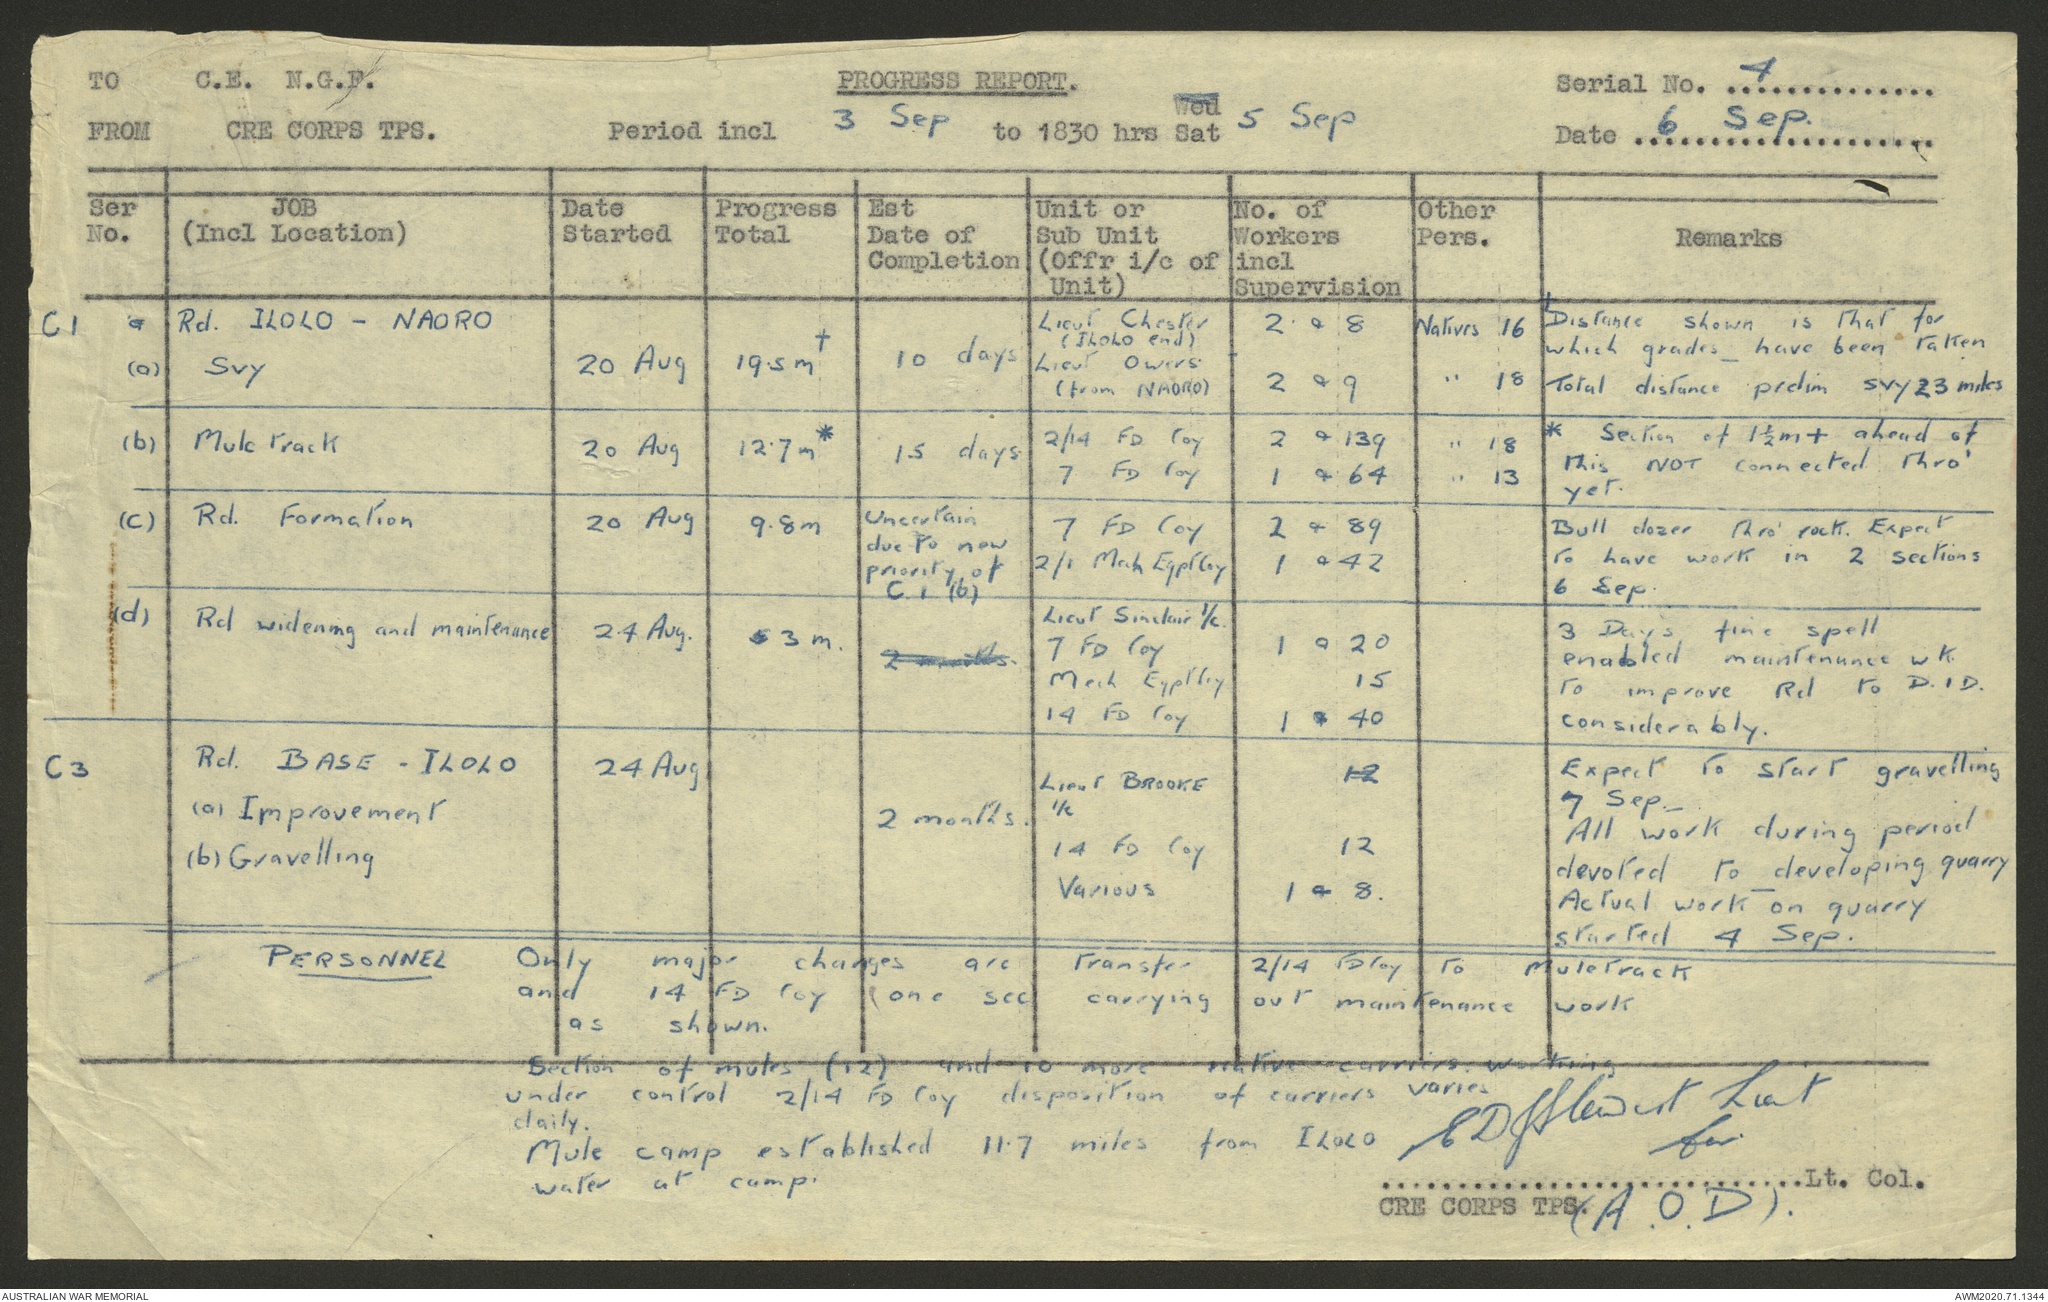 TO C.E. N.G.F. PROGRESS REPORT. Serial No. 4
FROM CRE CORPS TPS. Period incl 3 Sep to 1830 hrs Wed Sat 5 Sep Date 6 Sep.
Ser No. JOB (Incl Location) Date Started Progress Total Est Date of Completion Unit or Sub Unit (Offr i/c of Unit) No. of Workers incl Supervision Other Pers. Remarks
C1 Rd. ILOLO - NAORO
(a) Svy 20 Aug 19.5m† 10 days
Lieut Chester (ILOLO end) 2 & 8 Natives 16
Lieut Owers (from NAORO) 2 & 9 " 18
† Distance shown is that for
which grades have been taken
Total distance prelim svy 23 miles
(b) Mule track 20 Aug 12.7m* 15 days
2/14 FD Coy 2 & 139 " 18
7 FD Coy 1 & 64 " 13
* Section of 1½m+ ahead of
this NOT connected thro'
yet.
(c) Rd. Formation 20 Aug 9.8m
Uncertain
due to new
priority of
C.1 (b)
7 FD Coy 2 & 89
2/1 Mech Eqpt Coy 1 & 42
Bull dozer thro' rock. Expect
to have work in 2 sections
6 Sep.
(d) Rd widening and maintenance 24 Aug. 3 m. 2 months.
Lieut Sinclair i/c.
7 FD Coy 1 & 20
Mech Eqpt Coy 15
14 FD Coy 1 & 40
3 Days fine spell
enabled maintenance wk
to improve Rd to D.I.D.
considerably.
C3 Rd. BASE - ILOLO 24 Aug
(a) Improvement
(b) Gravelling
2 months.
Lieut BROOKE 12
i/c
14 FD Coy 12
Various 1 & 8.
Expect to start gravelling
7 Sep.
All work during period
devoted to developing quarry
Actual work on quarry
started 4 Sep.
PERSONNEL Only major changes are transfer 2/14 FD Coy to Muletrack
and 14 FD Coy (one sec carrying out maintenance work
as shown.
Section of mules (12) and 10 more native carriers working
under control 2/14 FD Coy disposition of carriers varies
daily.
Mule camp established 11.7 miles from ILOLO
water at camp.
Lieut
for
Lt. Col.
CRE CORPS TPS. (A.O.D).
AUSTRALIAN WAR MEMORIAL AWM2020.71.1344